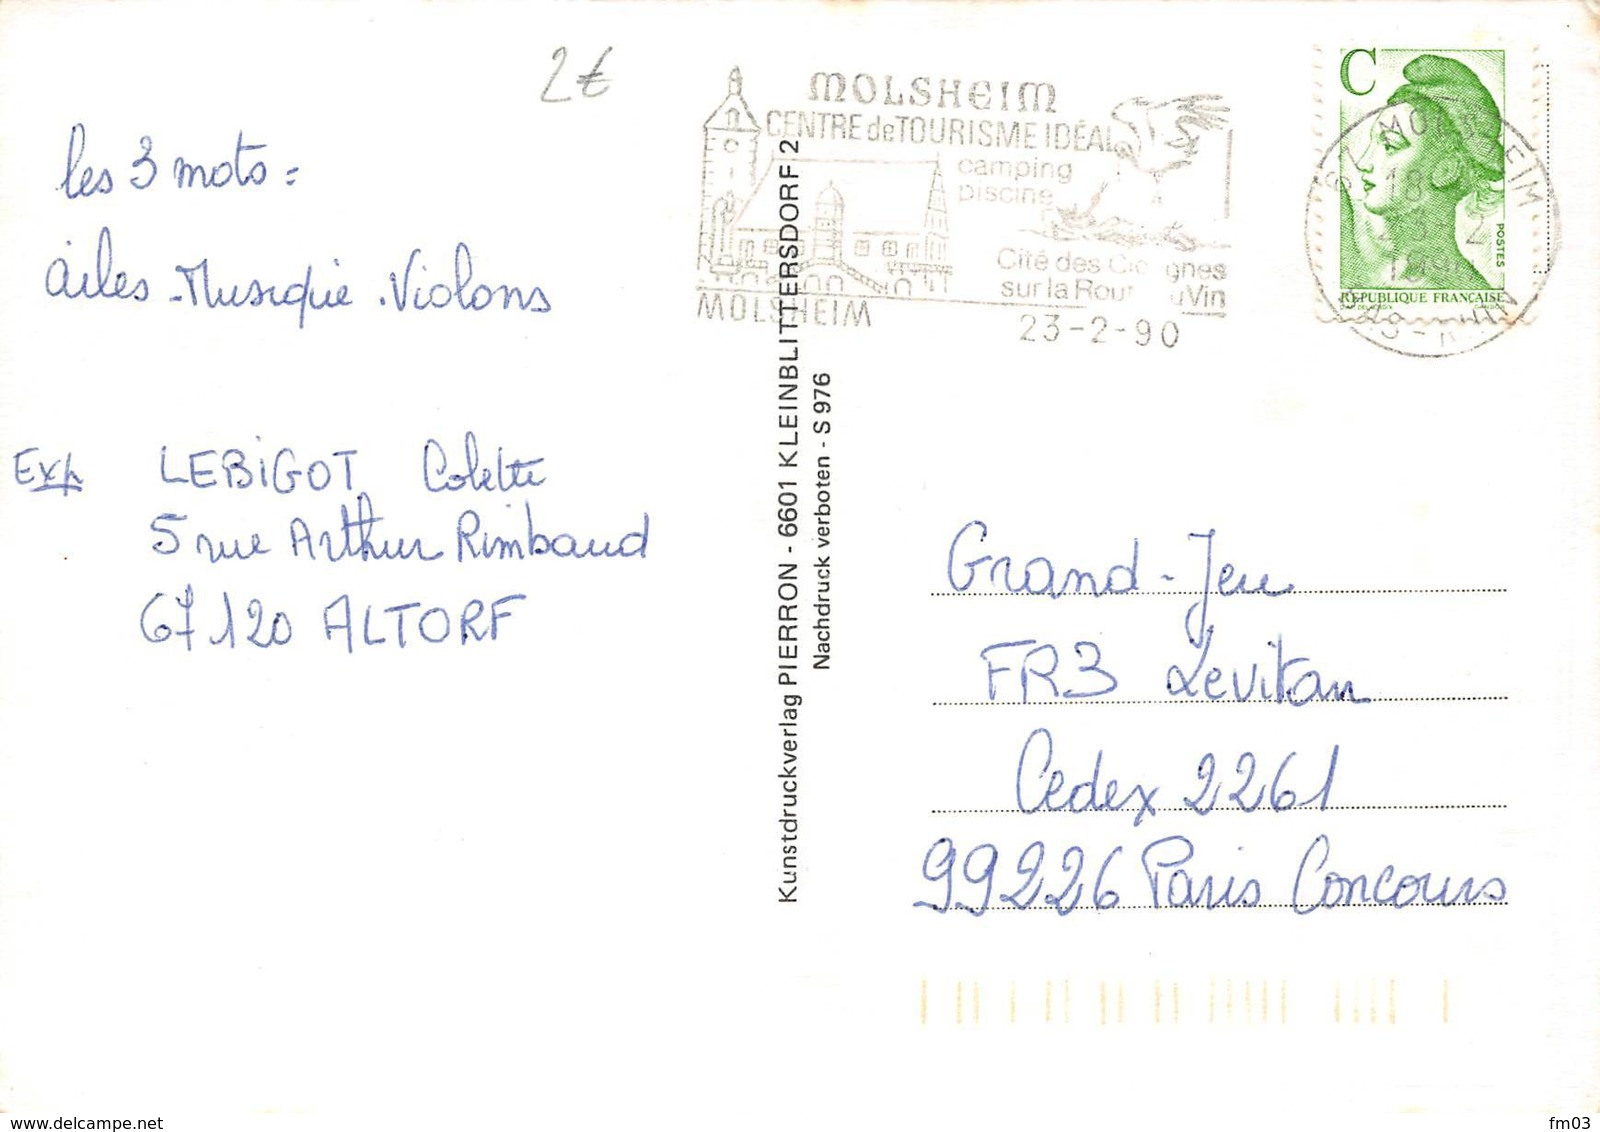 2€
les 3 mots =
Ailes - Musique - Violons
Exp LEBIGOT Colette
5 rue Arthur Rimbaud
67120 ALTORF
MOLSHEIM
CENTRE de TOURISME IDÉAL
camping
piscine
Cité des Cigognes
sur la Route du Vin
MOLSHEIM
23-2-90
C
POSTES
RÉPUBLIQUE FRANÇAISE
67 MOLSHEIM
18
23-2
BAS-RHIN
Kunstdruckverlag PIERRON - 6601 KLEINBLITTERSDORF 2
Nachdruck verboten - S 976
Grand-Jeu
FR3 Levitan
Cedex 2261
99226 Paris Concours
www.delcampe.net
fm03